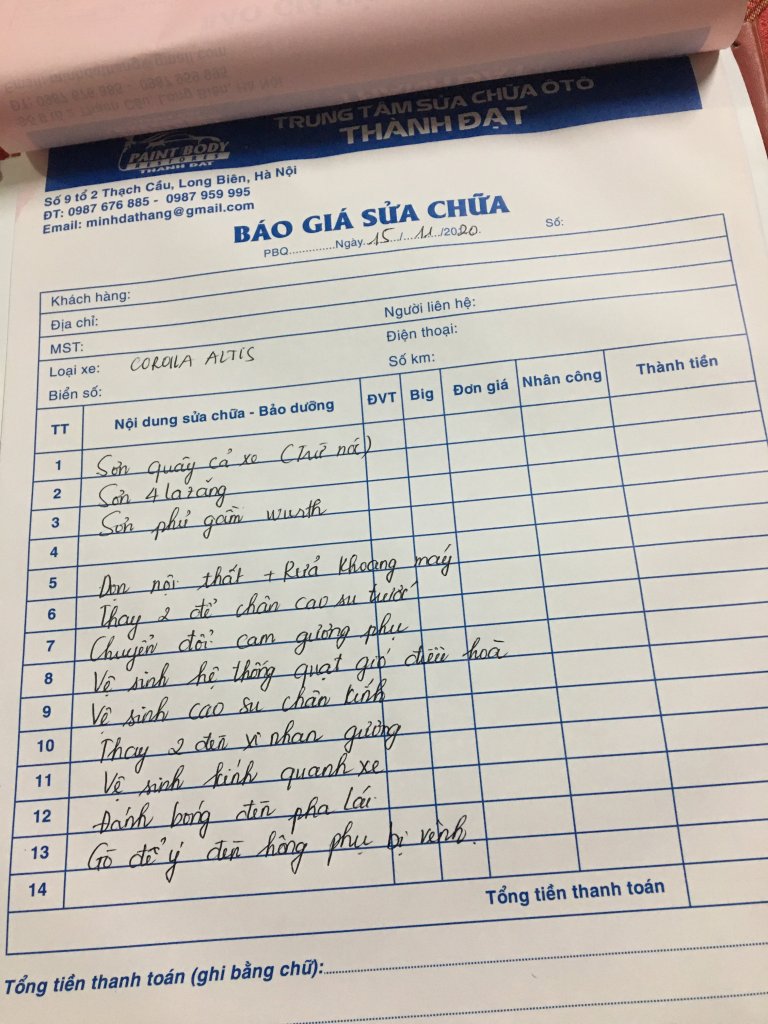 TRUNG TÂM SỬA CHỮA ÔTÔ
THÀNH ĐẠT
PAINT BODY
THANH DAT
Số 9 tổ 2 Thạch Cầu, Long Biên, Hà Nội
ĐT: 0987 676 885 - 0987 959 995
Email: minhdathang@gmail.com
BÁO GIÁ SỬA CHỮA
PBQ..............Ngày 15 / 11 /2020. Số:
Khách hàng:
Địa chỉ:
MST: Người liên hệ:
Loại xe: COROLLA ALTIS Điện thoại:
Biển số: Số km:
TT Nội dung sửa chữa - Bảo dưỡng ĐVT Big Đơn giá Nhân công Thành tiền
1 Sơn quây cả xe (Trừ nóc)
2 Sơn 4 la zăng
3 Sơn phủ gầm wurth
4
5 Dọn nội thất + Rửa khoang máy
6 Thay 2 đế chân cao su trước
7 Chuyển đổi cam gương phụ
8 Vệ sinh hệ thống quạt gió điều hoà
9 Vệ sinh cao su chân kính
10 Thay 2 đèn xi nhan gương
11 Vệ sinh kính quanh xe
12 Đánh bóng đèn pha lái
13 Gò để ý đèn hông phụ bị vênh.
14
Tổng tiền thanh toán
Tổng tiền thanh toán (ghi bằng chữ):